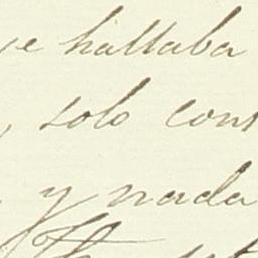 se hallaba
, solo con
y nada